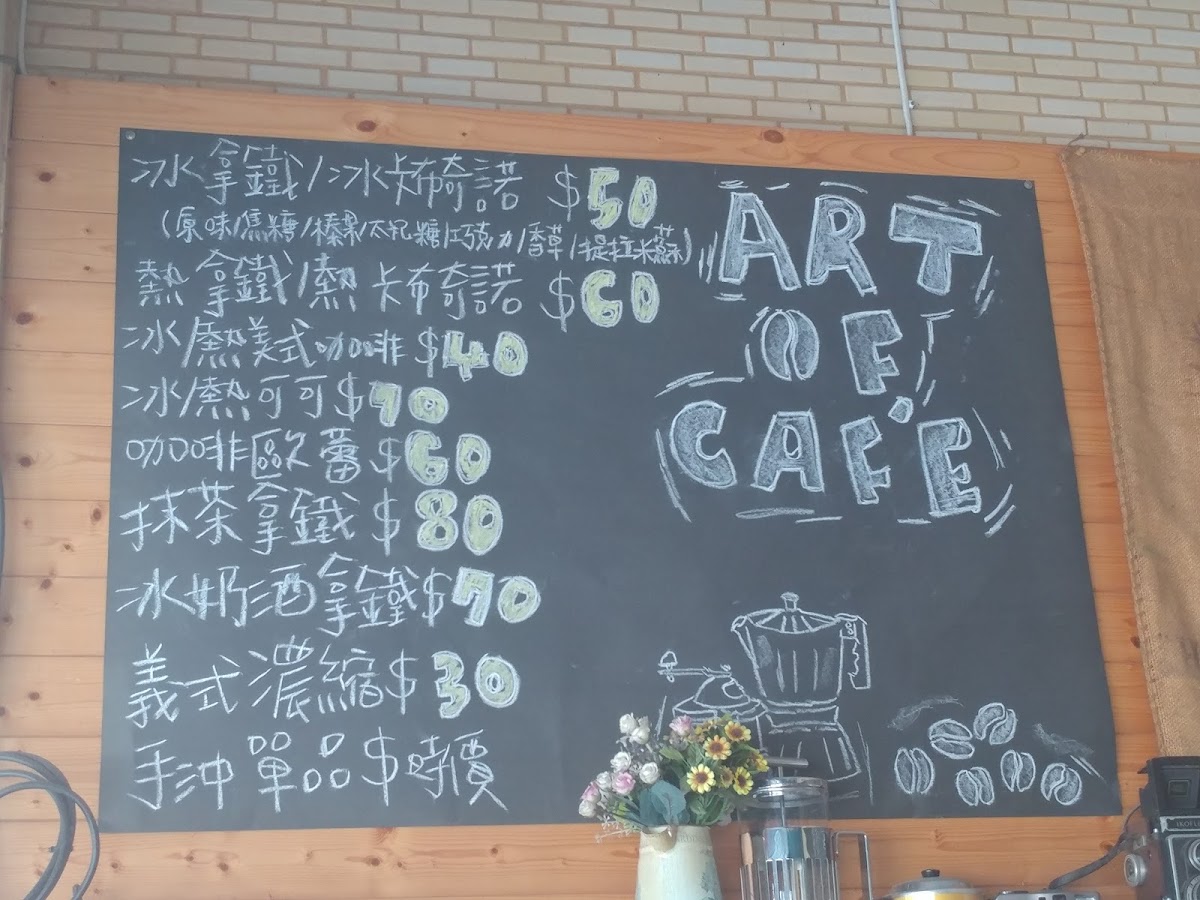 冰拿鐵/冰卡布奇諾 $50
(原味/焦糖/榛果/太妃糖/巧克力/香草/提拉米蘇)
熱拿鐵/熱卡布奇諾 $60
冰/熱美式咖啡 $40
冰/熱可可 $70
咖啡歐蕾 $60
抹茶拿鐵 $80
冰奶酒拿鐵 $70
義式濃縮 $30
手沖單品 $時價
ART
OF
CAFE